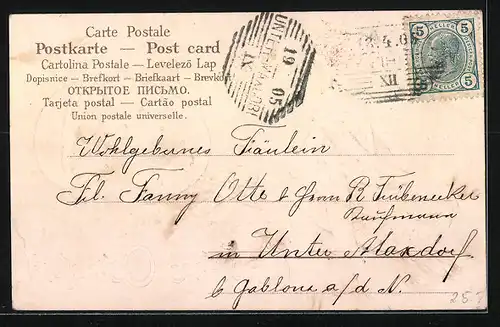 Carte Postale
Postkarte — Post card
Cartolina Postale — Levelező Lap
Dopisnice — Brefkort — Briefkaart — Brevkort
ОТКРЫТОЕ ПИСЬМО.
Tarjeta postal — Cartão postal
Union postale universelle.
19 05
IX
XII
5 5
HELLER HELLER
5 5
Wohlgebornes Fräulein
Frl. Fanny Otte b Herrn R
Kaufmann
in Unter Maxdorf
b Gablonz a/d N.
25